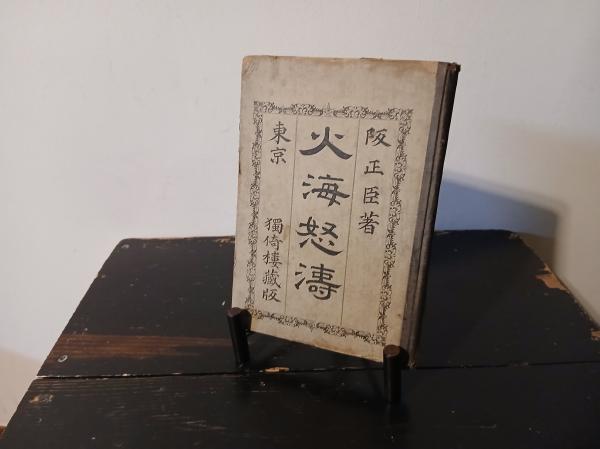 阪正臣著
火海怒濤
東京 獨倚樓藏版